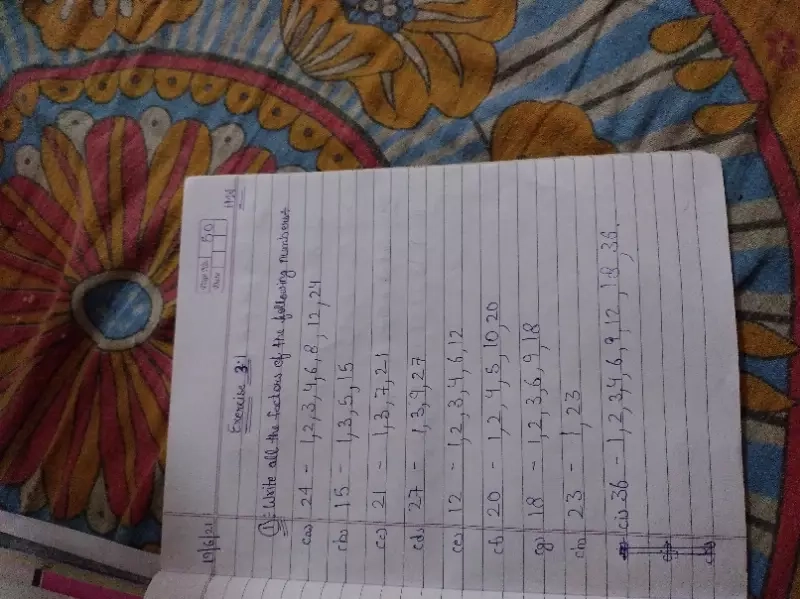 Page No. 50
Date
19/6/21
H.W
Exercise 3.1
(1) = Write all the factors of the following numbers
(a) 24 - 1,2,3,4,6,8,12,24
(b) 15 - 1,3,5,15
(c) 21 - 1,3,7,21
(d) 27 - 1,3,9,27
(e) 12 - 1,2,3,4,6,12
(f) 20 - 1,2,4,5,10,20
(g) 18 - 1,2,3,6,9,18
(h) 23 - 1,23
(i) 36 - 1,2,3,4,6,9,12,18,36.